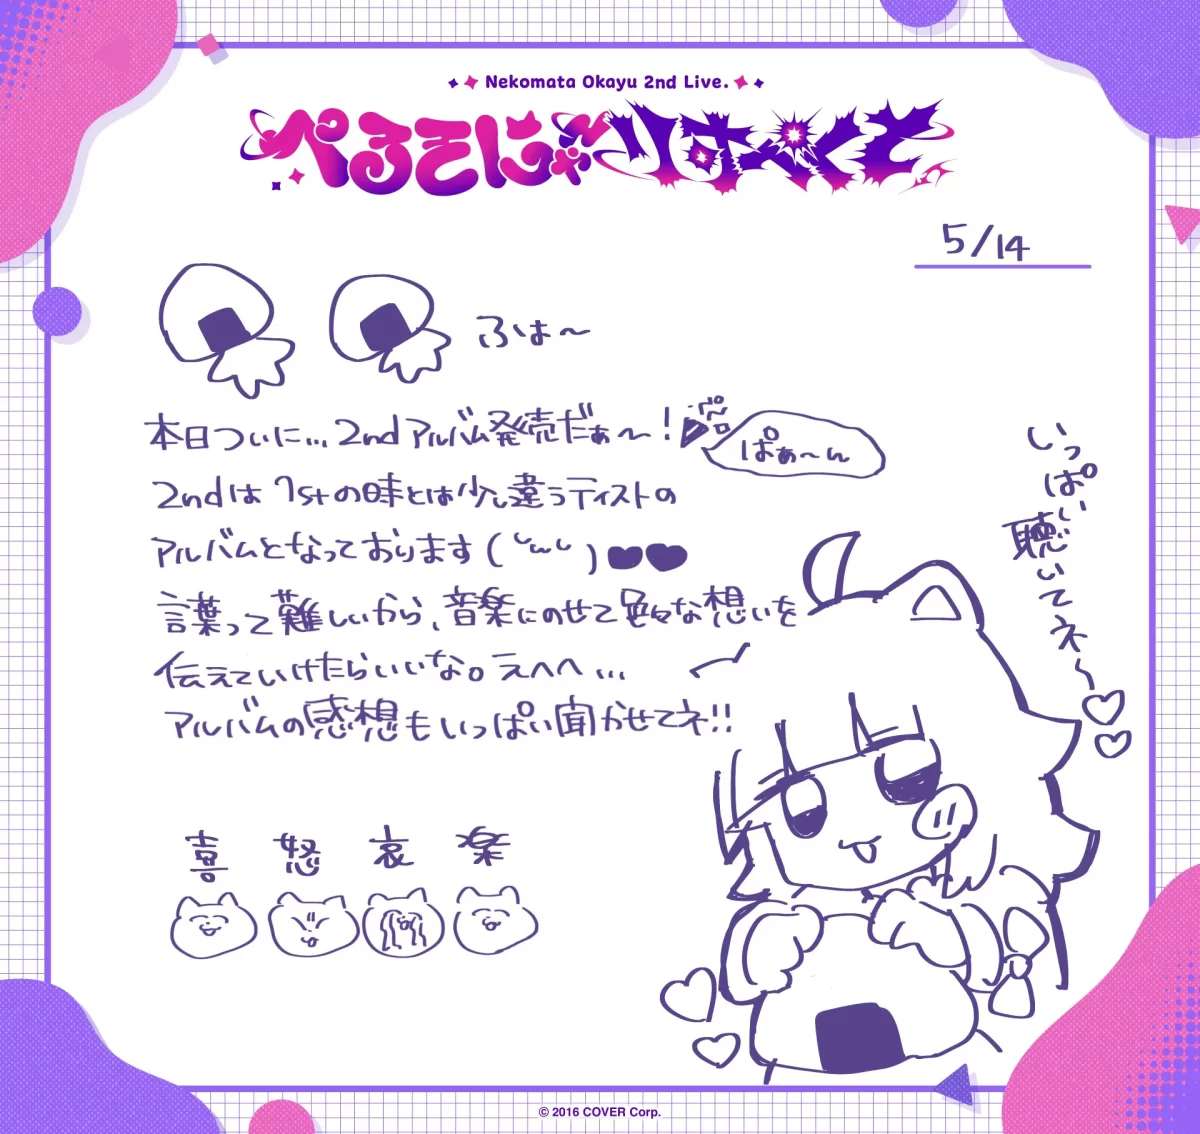 Nekomata Okayu 2nd Live.
ぺるそにゃ〜りすぺくと
5/14
ふは〜
本日ついに...2ndアルバム発売だぁ〜!
ぱぁ〜ん
2ndは1stの時とは少し違うテイストの
アルバムとなっております(
言葉って難しいから、音楽にのせて色々な想いを
伝えていけたらいいな。えへへ...
アルバムの感想もいっぱい聞かせてネ!!
いっぱい聴いてネ〜
喜 怒 哀 楽
© 2016 COVER Corp.